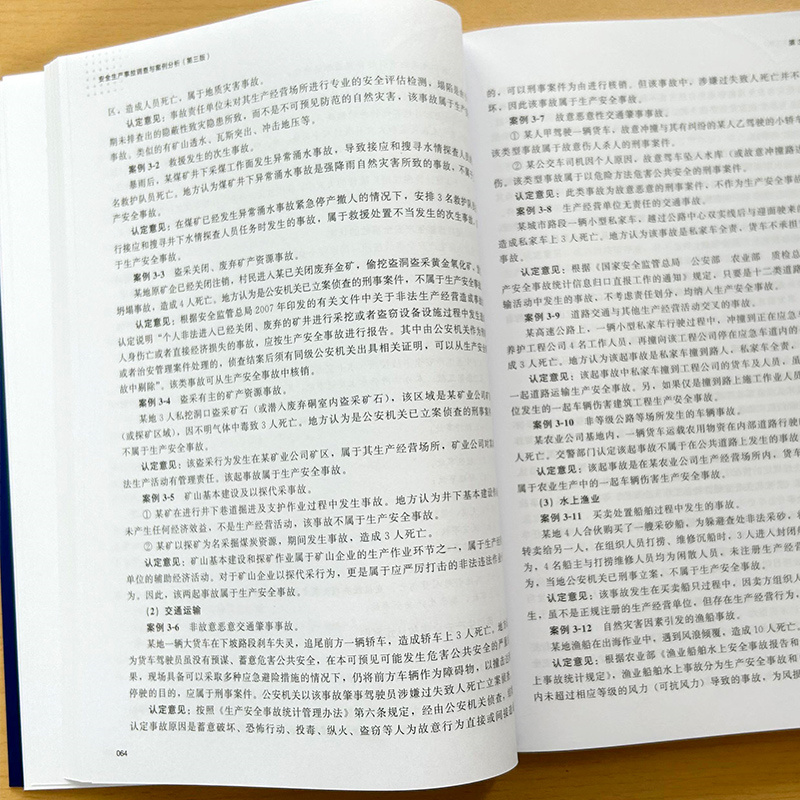 安全生产事故调查与案例分析（第三版）
区，造成人员死亡，属于地质灾害事故。
认定意见：事故责任单位未对其生产经营场所进行专业的安全评估检测，塌陷是
期未排查出的隐蔽性致灾隐患所致，而不是不可预见防范的自然灾害，该事故属于生产
事故。类似的有矿山透水、瓦斯突出、冲击地压等。
案例 3-2 救援发生的次生事故。
暴雨后，某煤矿井下采煤工作面发生异常涌水事故，导致接应和搜寻水情探查人员的
名救护队员死亡。地方认为煤矿井下异常涌水事故是强降雨自然灾害所致的事故，不属
产安全事故。
认定意见：在煤矿已经发生异常涌水事故紧急停产撤人的情况下，安排 3 名救护队员
行接应和搜寻井下水情探查人员任务时发生的事故，属于救援处置不当发生的次生事故
于生产安全事故。
案例 3-3 盗采关闭、废弃矿产资源事故。
某地原矿企已经关闭注销，村民进入某已关闭废弃金矿，偷挖盗洞盗采黄金氧化矿，
坍塌事故，造成 4 人死亡。地方认为是公安机关已立案侦查的刑事案件，不属于生产安全事
认定意见：根据安全监管总局 2007 年印发的有关文件中关于非法生产经营造成事故
认定说明“个人非法进入已经关闭、废弃的矿井进行采挖或者盗窃设备设施过程中发生
人身伤亡或者直接经济损失的事故，应按生产安全事故进行报告。其中由公安机关作为刑
或者治安管理案件处理的，侦查结案后须有同级公安机关出具相关证明，可以从生产安
故中剔除”。该类事故可从生产安全事故中核销。
案例 3-4 盗采有主的矿产资源事故。
某地 3 人私挖洞口盗采矿石（或潜入废弃硐室内盗采矿石），该区域是某矿业公司
（或探矿区域），因不明气体中毒致 3 人死亡。地方认为是公安机关已立案侦查的刑事案件
不属于生产安全事故。
认定意见：该盗采行为发生在某矿业公司矿区，属于其生产经营场所，矿业公司对
法生产活动有管理责任。该起事故属于生产安全事故。
案例 3-5 矿山基本建设及以探代采事故。
① 某矿在进行井下巷道掘进及支护作业过程中发生事故。地方认为井下基本建设
未产生任何经济效益，不是生产经营活动，该事故不属于生产安全事故。
② 某矿以探矿为名采掘煤炭资源，期间发生事故，造成 3 人死亡。
认定意见：矿山基本建设和探矿作业属于矿山企业的生产作业环节之一，属于生产
单位的辅助经济活动。对于矿山企业以探代采行为，更是属于应严厉打击的非法违法作
为。因此，该两起事故属于生产安全事故。
（2）交通运输
案例 3-6 非故意恶意交通肇事事故。
某地一辆大货车在下坡路段刹车失灵，追尾前方一辆轿车，造成轿车上 3 人死亡。地
为货车驾驶员虽没有预谋、蓄意危害公共安全，在本可预见可能发生危害公共安全的严重
果，现场具备可以采取多种应急避险措施的情况下，仍将前方车辆作为障碍物，以撞击
停驶的目的，应属于刑事案件。公安机关以该事故肇事驾驶员涉嫌过失致人死亡立案侦
认定意见：按照《生产安全事故统计管理办法》第六条规定，经由公安机关侦查，结
认定事故原因是蓄意破坏、恐怖行动、投毒、纵火、盗窃等人为故意行为直接或间接
064
第三
的，可以刑事案件为由进行核销。但该事故中，涉嫌过失致人死亡并不
坏，因此该事故属于生产安全事故。
案例 3-7 故意恶意性交通肇事事故。
① 某人甲驾驶一辆货车，故意冲撞与其有纠纷的某人乙驾驶的小轿车
该类型事故属于故意伤人杀人的刑事案件。
② 某公交车司机因个人原因，故意驾车坠入水库（或故意冲撞路
伤。该类型事故属于以危险方法危害公共安全的刑事案件。
认定意见：此类事故为故意恶意的刑事案件，不作为生产安全事故
案例 3-8 生产经营单位无责任的交通事故。
某城市路段一辆小型私家车，越过公路中心双实线后与迎面驶来的
造成私家车上 3 人死亡。地方认为该事故是私家车全责，货车不承担
事故。
认定意见：根据《国家安全监管总局 公安部 农业部 质检总
产安全事故统计信息归口直报工作的通知》规定，只要是十二类道路
输活动中发生的事故，不考虑责任划分，均纳入生产安全事故。
案例 3-9 道路交通与其他生产经营活动交叉的事故。
某高速公路上，一辆小型私家车行驶过程中，冲撞到正在应急
养护工程公司 4 名工作人员，再撞向该工程公司停在应急车道内的
成 3 人死亡。地方认为该起事故是私家车撞到路人，私家车全责，
认定意见：该起事故中私家车撞到工程公司的货车及人员，虽
一起道路运输生产安全事故。另，如果仅是撞到路上施工作业人员
位发生的一起车辆伤害建筑工程生产安全事故。
案例 3-10 非等级公路等场所发生的车辆事故。
某农业公司基地内，一辆货车运载农用物资在内部道路行驶
人死亡。交警部门认定该起事故不属于在公共道路上发生的事故
认定意见：该起事故是在某农业公司生产经营场所内，货车
属于农业生产中的一起车辆伤害生产安全事故。
（3）水上渔业
案例 3-11 买卖处置船舶过程中发生的事故。
某地 4 人合伙购买了一艘采砂船，为躲避查处非法采砂，将
转卖给另一人，在组织人员打捞、维修沉船时，3 人进入封闭
为，4 名船主与打捞维修人员均为闲散人员，未注册生产经营
故，当地公安机关已刑事立案，不属于生产安全事故。
认定意见：该事故发生在买卖船只过程中，因卖方组织人
生，虽不是正规注册的生产经营单位，但存在生产经营行为，
案例 3-12 自然灾害因素引发的渔船事故。
某地渔船在出海作业中，遇到风浪倾覆，造成 10 人死亡。
认定意见：根据农业部《渔业船舶水上安全事故报告和
上事故统计规定》，渔业船舶水上事故分为生产安全事故和
内未超过相应等级的风力（可抗风力）导致的事故，为风损